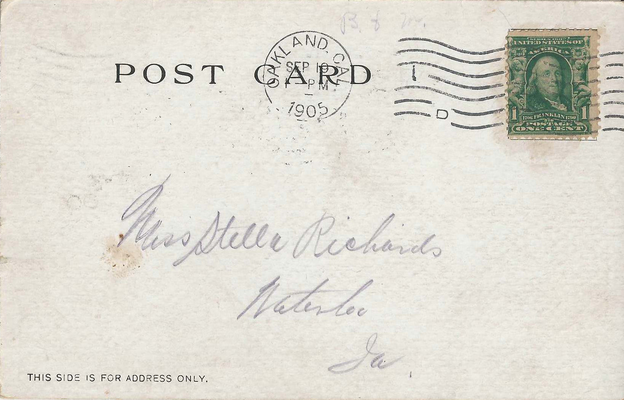 POST CARD
OAKLAND. CAL.
SEP 19
PM
1905
1
D
UNITED STATES OF
1
FRANKLIN
1
POSTAGE
ONE CENT
Miss Stella Richards
Waterloo
Ia.
THIS SIDE IS FOR ADDRESS ONLY.